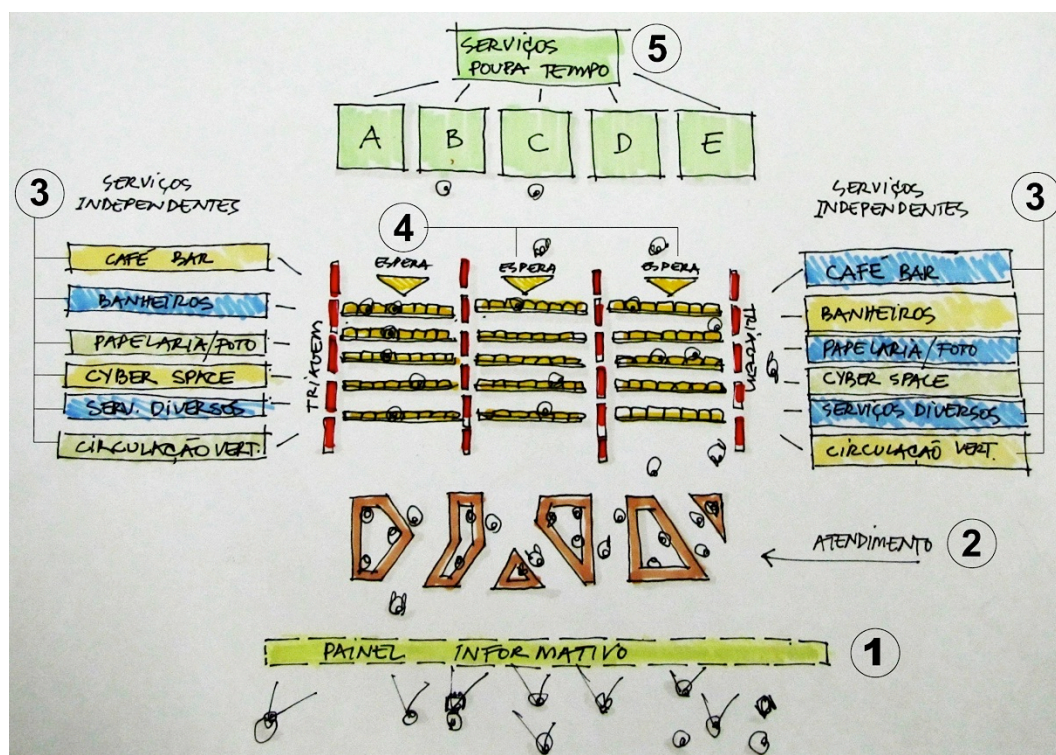 SERVIÇOS
POUPA TEMPO
5
A B C D E
3
SERVIÇOS
INDEPENDENTES
CAFÉ BAR
BANHEIROS
PAPELARIA/FOTO
CYBER SPACE
SERV. DIVERSOS
CIRCULAÇÃO VERT.
4
ESPERA
ESPERA
ESPERA
TRIAGEM
TRIAGEM
SERVIÇOS
INDEPENDENTES
3
CAFÉ BAR
BANHEIROS
PAPELARIA/FOTO
CYBER SPACE
SERVIÇOS DIVERSOS
CIRCULAÇÃO VERT.
ATENDIMENTO
2
PAINEL INFORMATIVO
1